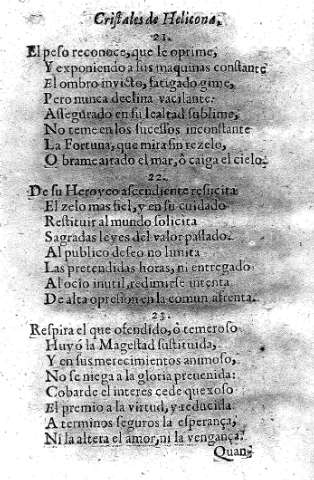 Cristales de Helicona.
21.
El peso reconoce, que le oprime,
Y exponiendo a sus maquinas constante
El ombro invicto, fatigado gime,
Pero nunca declina vacilante.
Assegurado en su lealtad sublime,
No teme en los sucessos inconstante
La Fortuna, que mira sin rezelo,
O brame airado el mar, ò caiga el cielo.
22.
De su Heroyco ascendiente resucita
El zelo mas fiel, y en su cuidado
Restituir al mundo solicita
Sagradas leyes del valor passado.
Al publico deseo no limita
Las pretendidas horas, ni entregado
Al ocio inutil, redimirse intenta
De alta opresion en la comun afrenta.
23.
Respira el que ofendido, ò temeroso
Huyó la Magestad sustituida,
Y en sus merecimientos animoso,
No se niega a la gloria preuenida:
Cobarde el interes cede quexoso
El premio a la virtud, y reducida
A terminos seguros la esperança,
Ni la altera el amor, ni la vengança.
Quan-